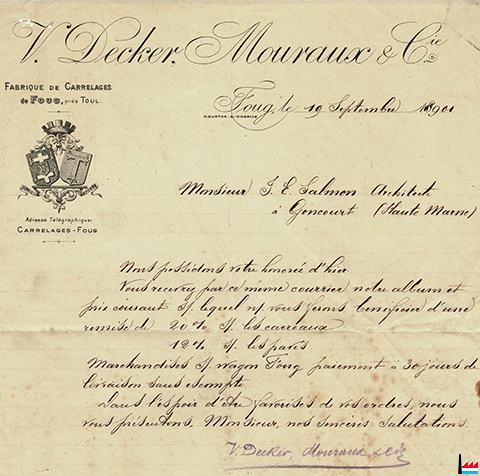 V. Decker, Mouraux & Cie
FABRIQUE DE CARRELAGES
de FOUG, près TOUL.
Foug, le 19 Septembre 1901
MEURTHE-&-MOSELLE
Monsieur J. E. Salmon Architect
à Goncourt (Haute Marne)
Adresse Télégraphique:
CARRELAGES-FOUG
Nous possédons votre honorée d'hier
Vous recevrez par ce même courrier notre album et
prix courant s/ lequel ns/ vous ferons bénéficier d'une
remise de 20% s/ les carreaux
12% s/ les pavés
Marchandises s/ wagon Foug paiement à 30 jours de
livraison sans escompte.
Dans l'espoir d'être favorisés de vos ordres, nous
vous présentons, Monsieur, nos sincères salutations.
V. Decker, Mouraux & Cie